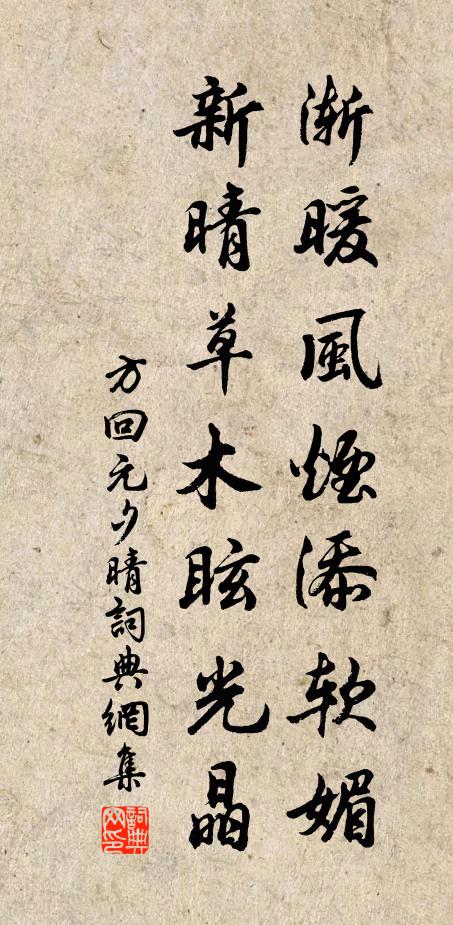 漸暖風煙添軟媚
新晴草木眩光晶
方回元夕晴詞典網集
詞典網印